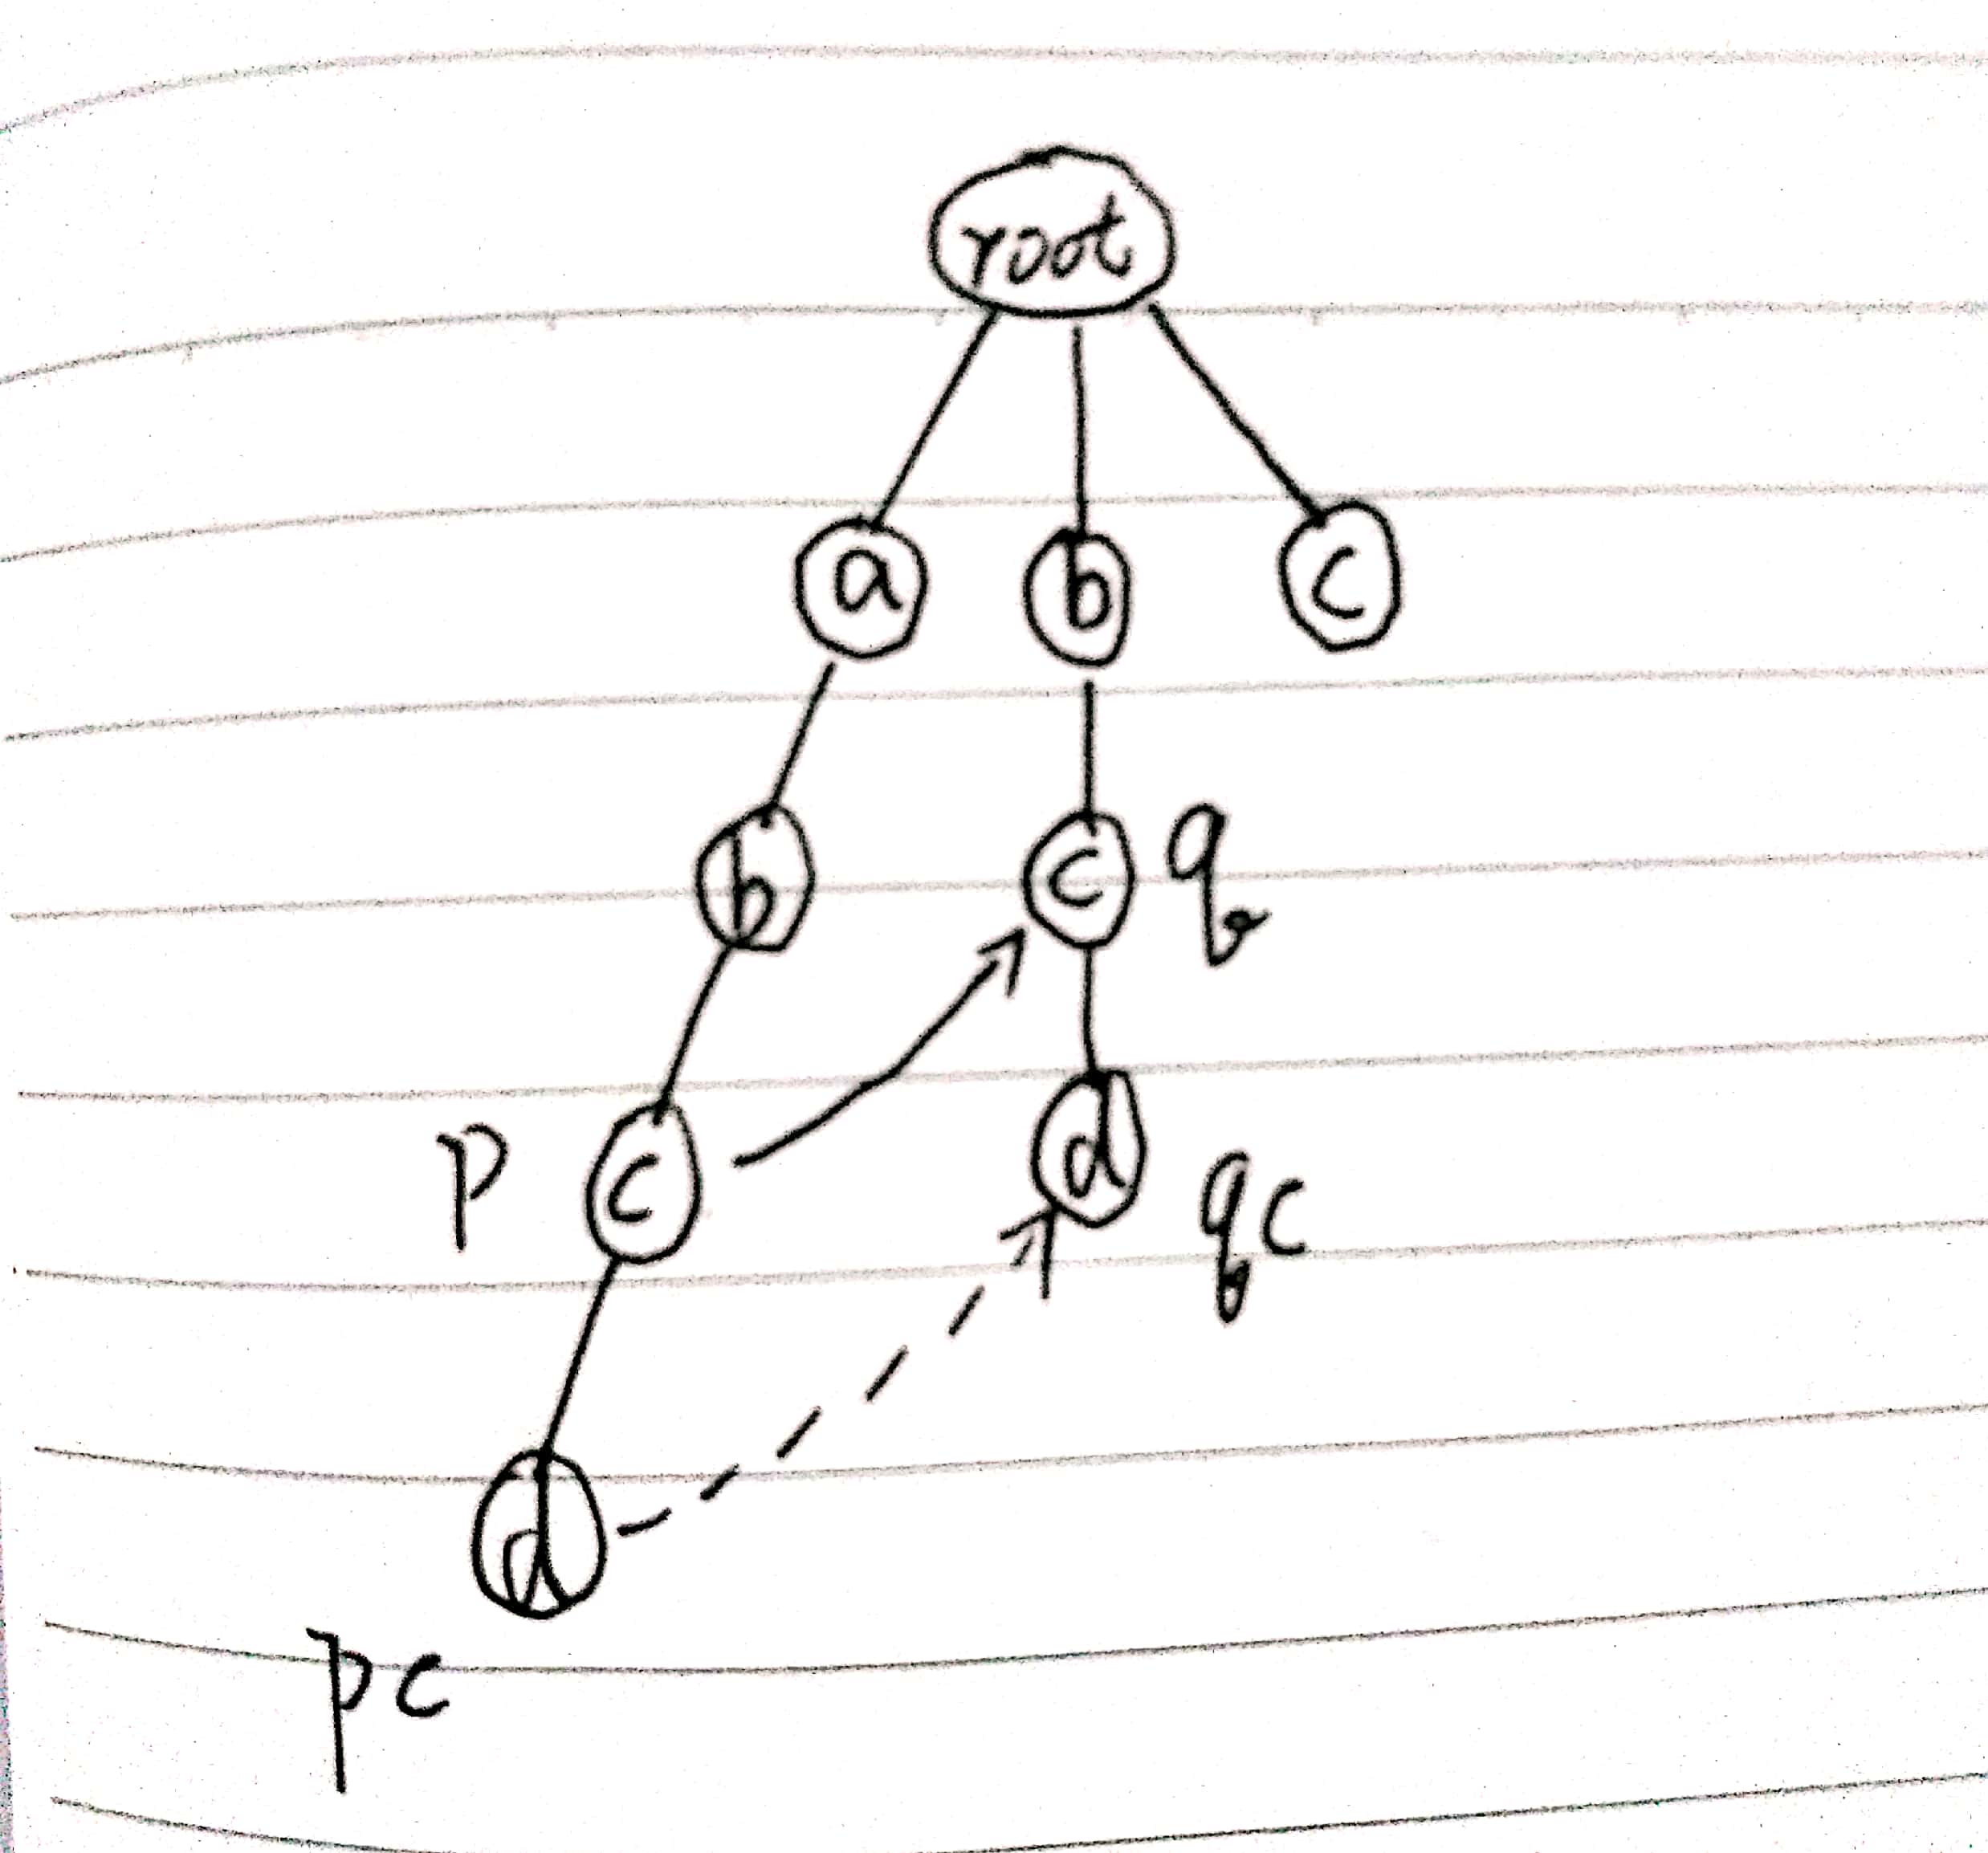 root
a b c
b c q
p c d qc
d
pc